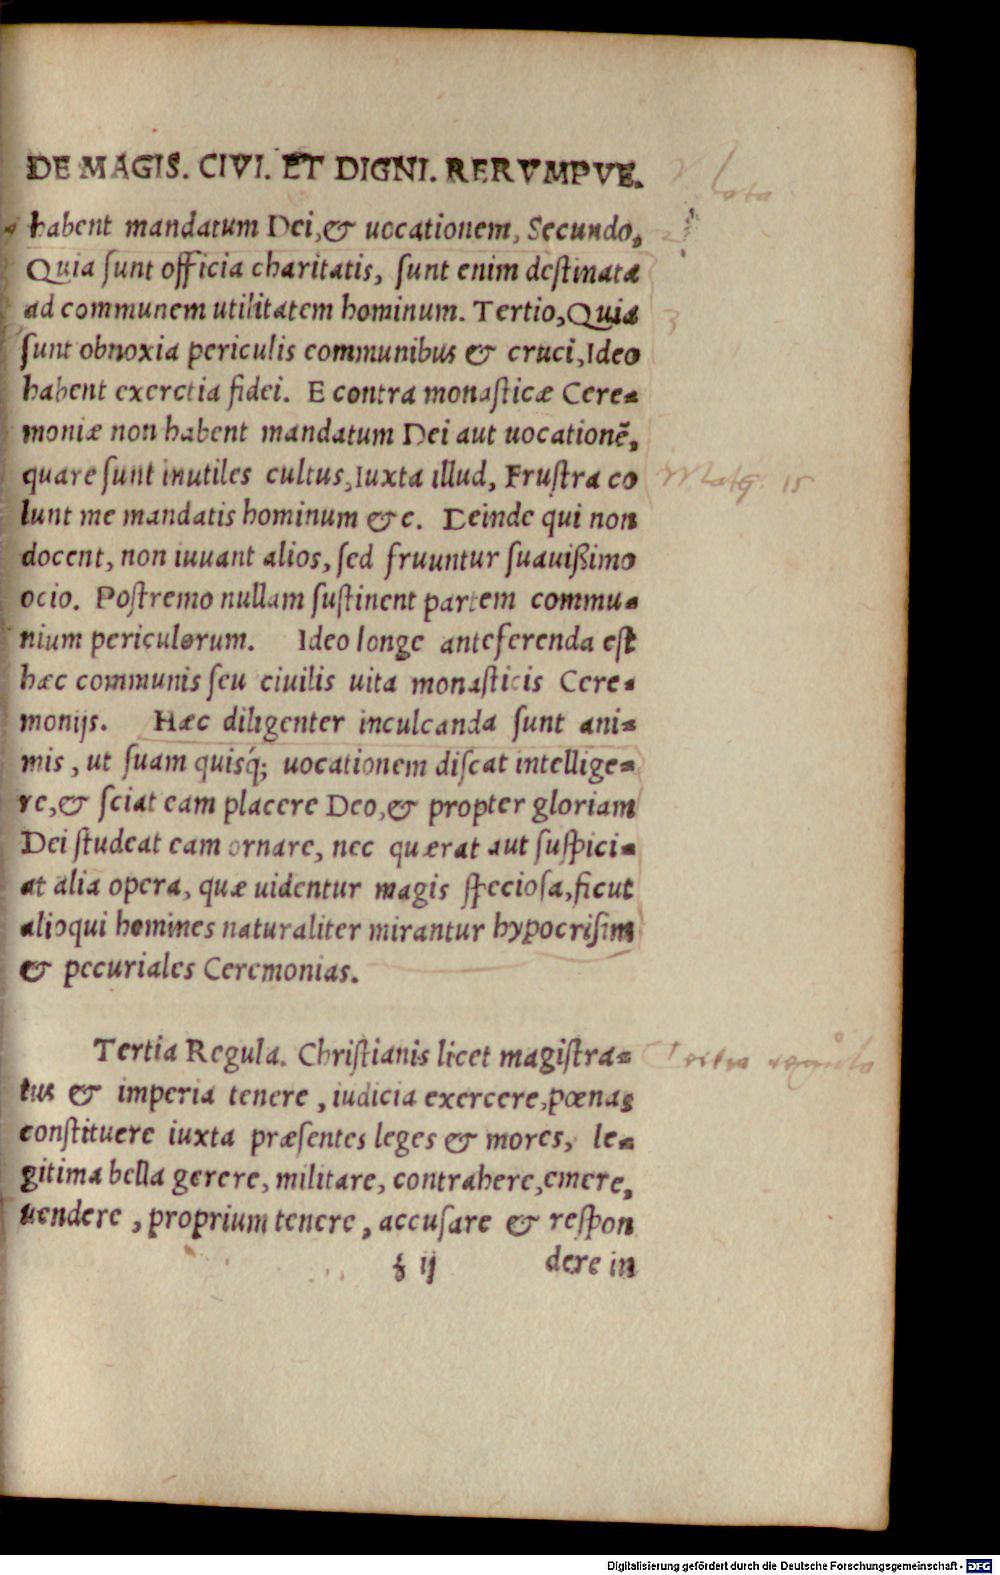 DE MAGIS. CIVI. ET DIGNI. RERVMPVE.
Nota
habent mandatum Dei,& uocationem, Secundo,
2
Quia ſunt officia charitatis, ſunt enim deſtinata
ad communem utilitatem hominum. Tertio,Quia
3
ſunt obnoxia periculis communibus & cruci,Ideo
habent exercitia fidei. E contra monaſticæ Cere=
moniæ non habent mandatum Dei aut uocationẽ,
quare ſunt inutiles cultus,Iuxta illud, Fruſtra co
Matq. 15
lunt me mandatis hominum &c. Deinde qui non
docent, non iuuant alios, ſed fruuntur ſuauißimo
ocio. Poſtremo nullam ſuſtinent partem commu=
nium periculorum. Ideo longe anteferenda eſt
hæc communis ſeu ciuilis uita monaſticis Cere=
monijs. Hæc diligenter inculcanda ſunt ani=
mis, ut ſuam quisq́; uocationem diſcat intellige=
re,& ſciat eam placere Deo,& propter gloriam
Dei ſtudeat eam ornare, nec quærat aut ſuſpici=
at alia opera, quæ uidentur magis ſpecioſa,ſicut
alioqui homines naturaliter mirantur hypocriſim
& pecuriales Ceremonias.
Tertia Regula. Chriſtianis licet magiſtra=
Tertia regula
tus & imperia tenere, iudicia exercere,pœnas
conſtituere iuxta præſentes leges & mores, le=
gitima bella gerere, militare, contrahere,emere,
uendere, proprium tenere, accuſare & reſpon
ij
dere in
Digitalisierung gefördert durch die Deutsche Forschungsgemeinschaft - DFG